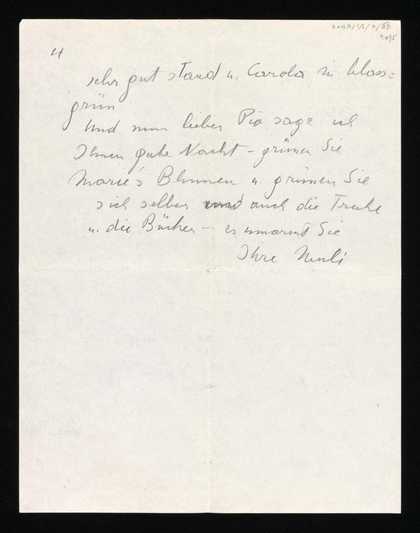 4
sehr gut stand u. Carola in blass=
grün
Und nun lieber Pia sage ich
Ihnen gute Nacht – grüssen Sie
Marie's Blumen u. grüssen Sie
sich selber und auch die Truhe
u. die Bücher – es umarmt Sie
Ihre